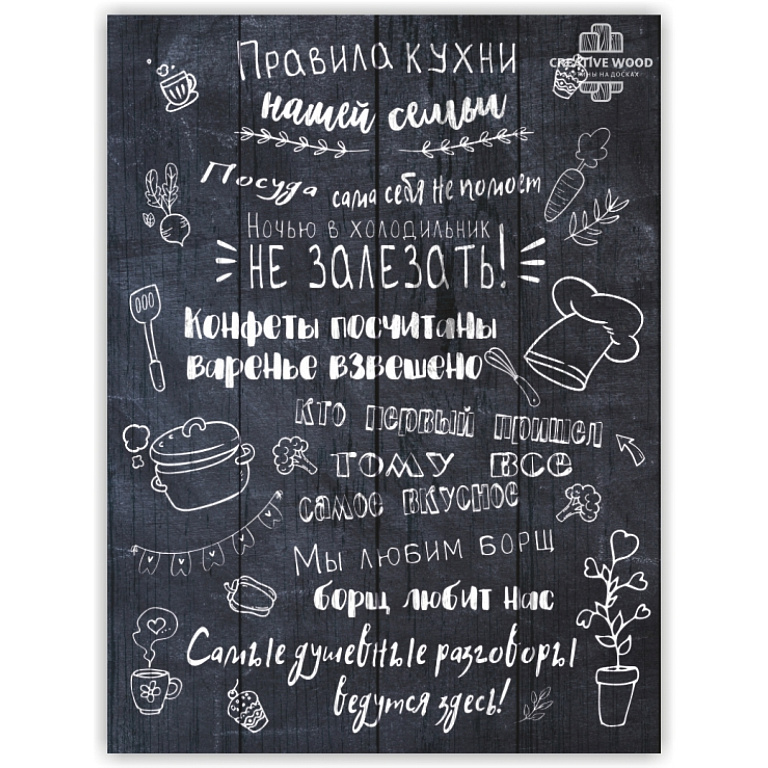 Правила кухни
нашей семьи
CREATIVE WOOD
Посуда сама себя не помоет
Ночью в холодильник
НЕ ЗАЛЕЗАТЬ!
Конфеты посчитаны
варенье взвешено
кто первый пришел
тому все
самое вкусное
Мы любим борщ
борщ любит нас
Самые душевные разговоры
ведутся здесь!